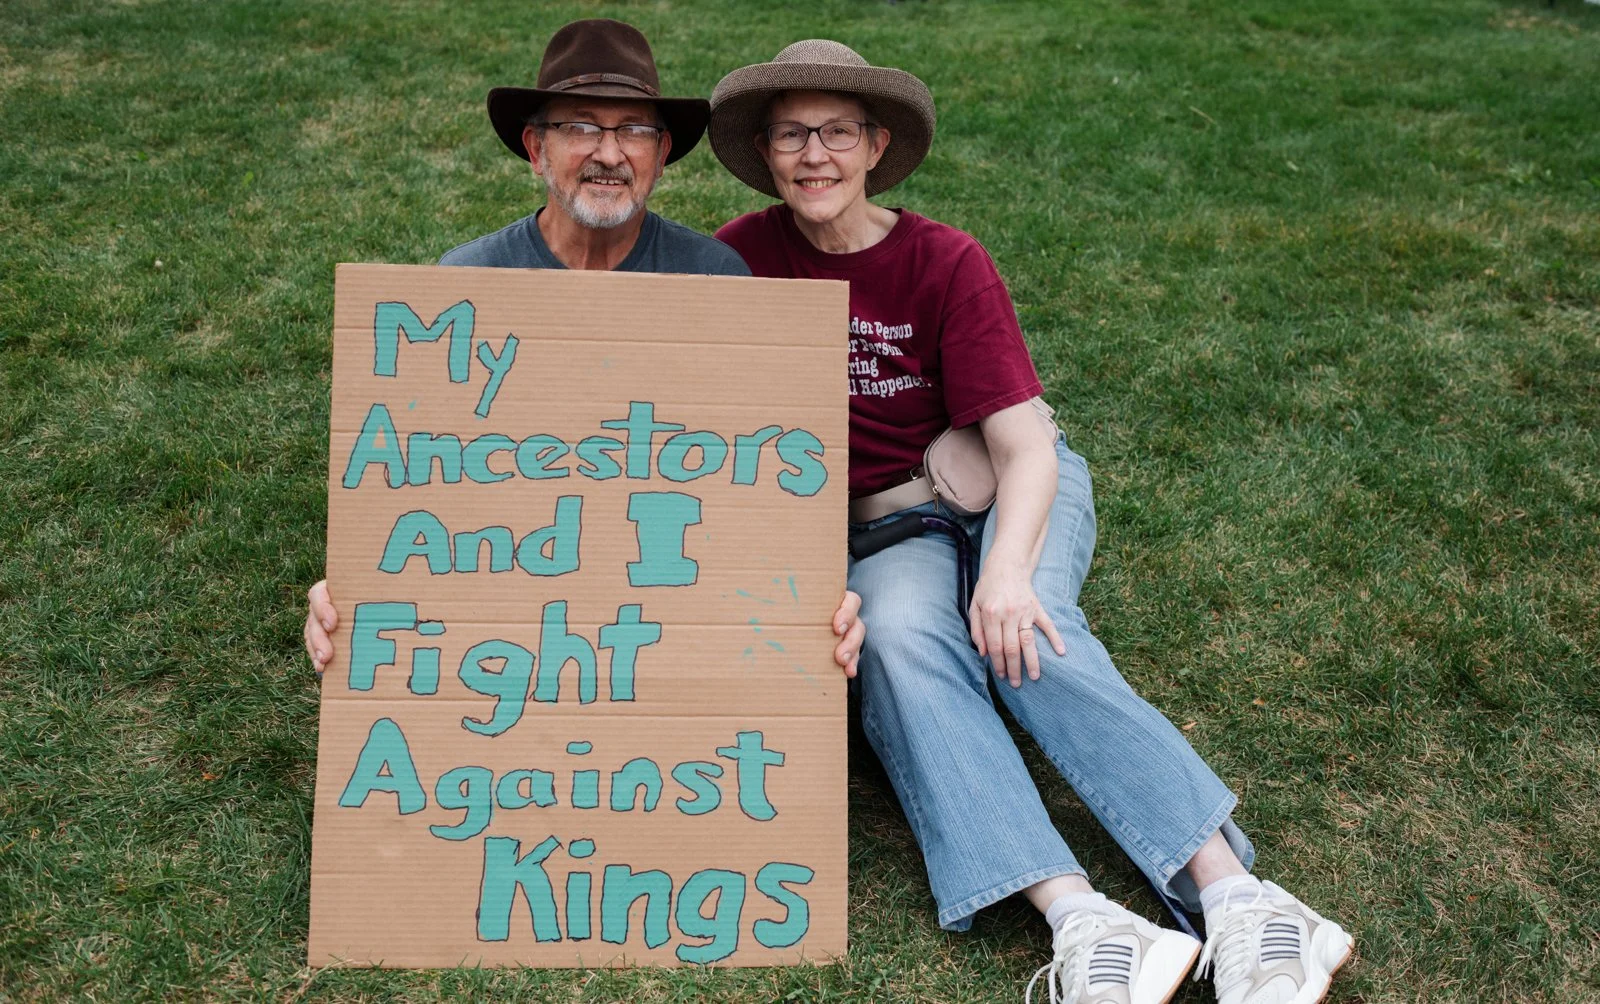 My
Ancestors
And I
Fight
Against
Kings
Person
Person
Happened.